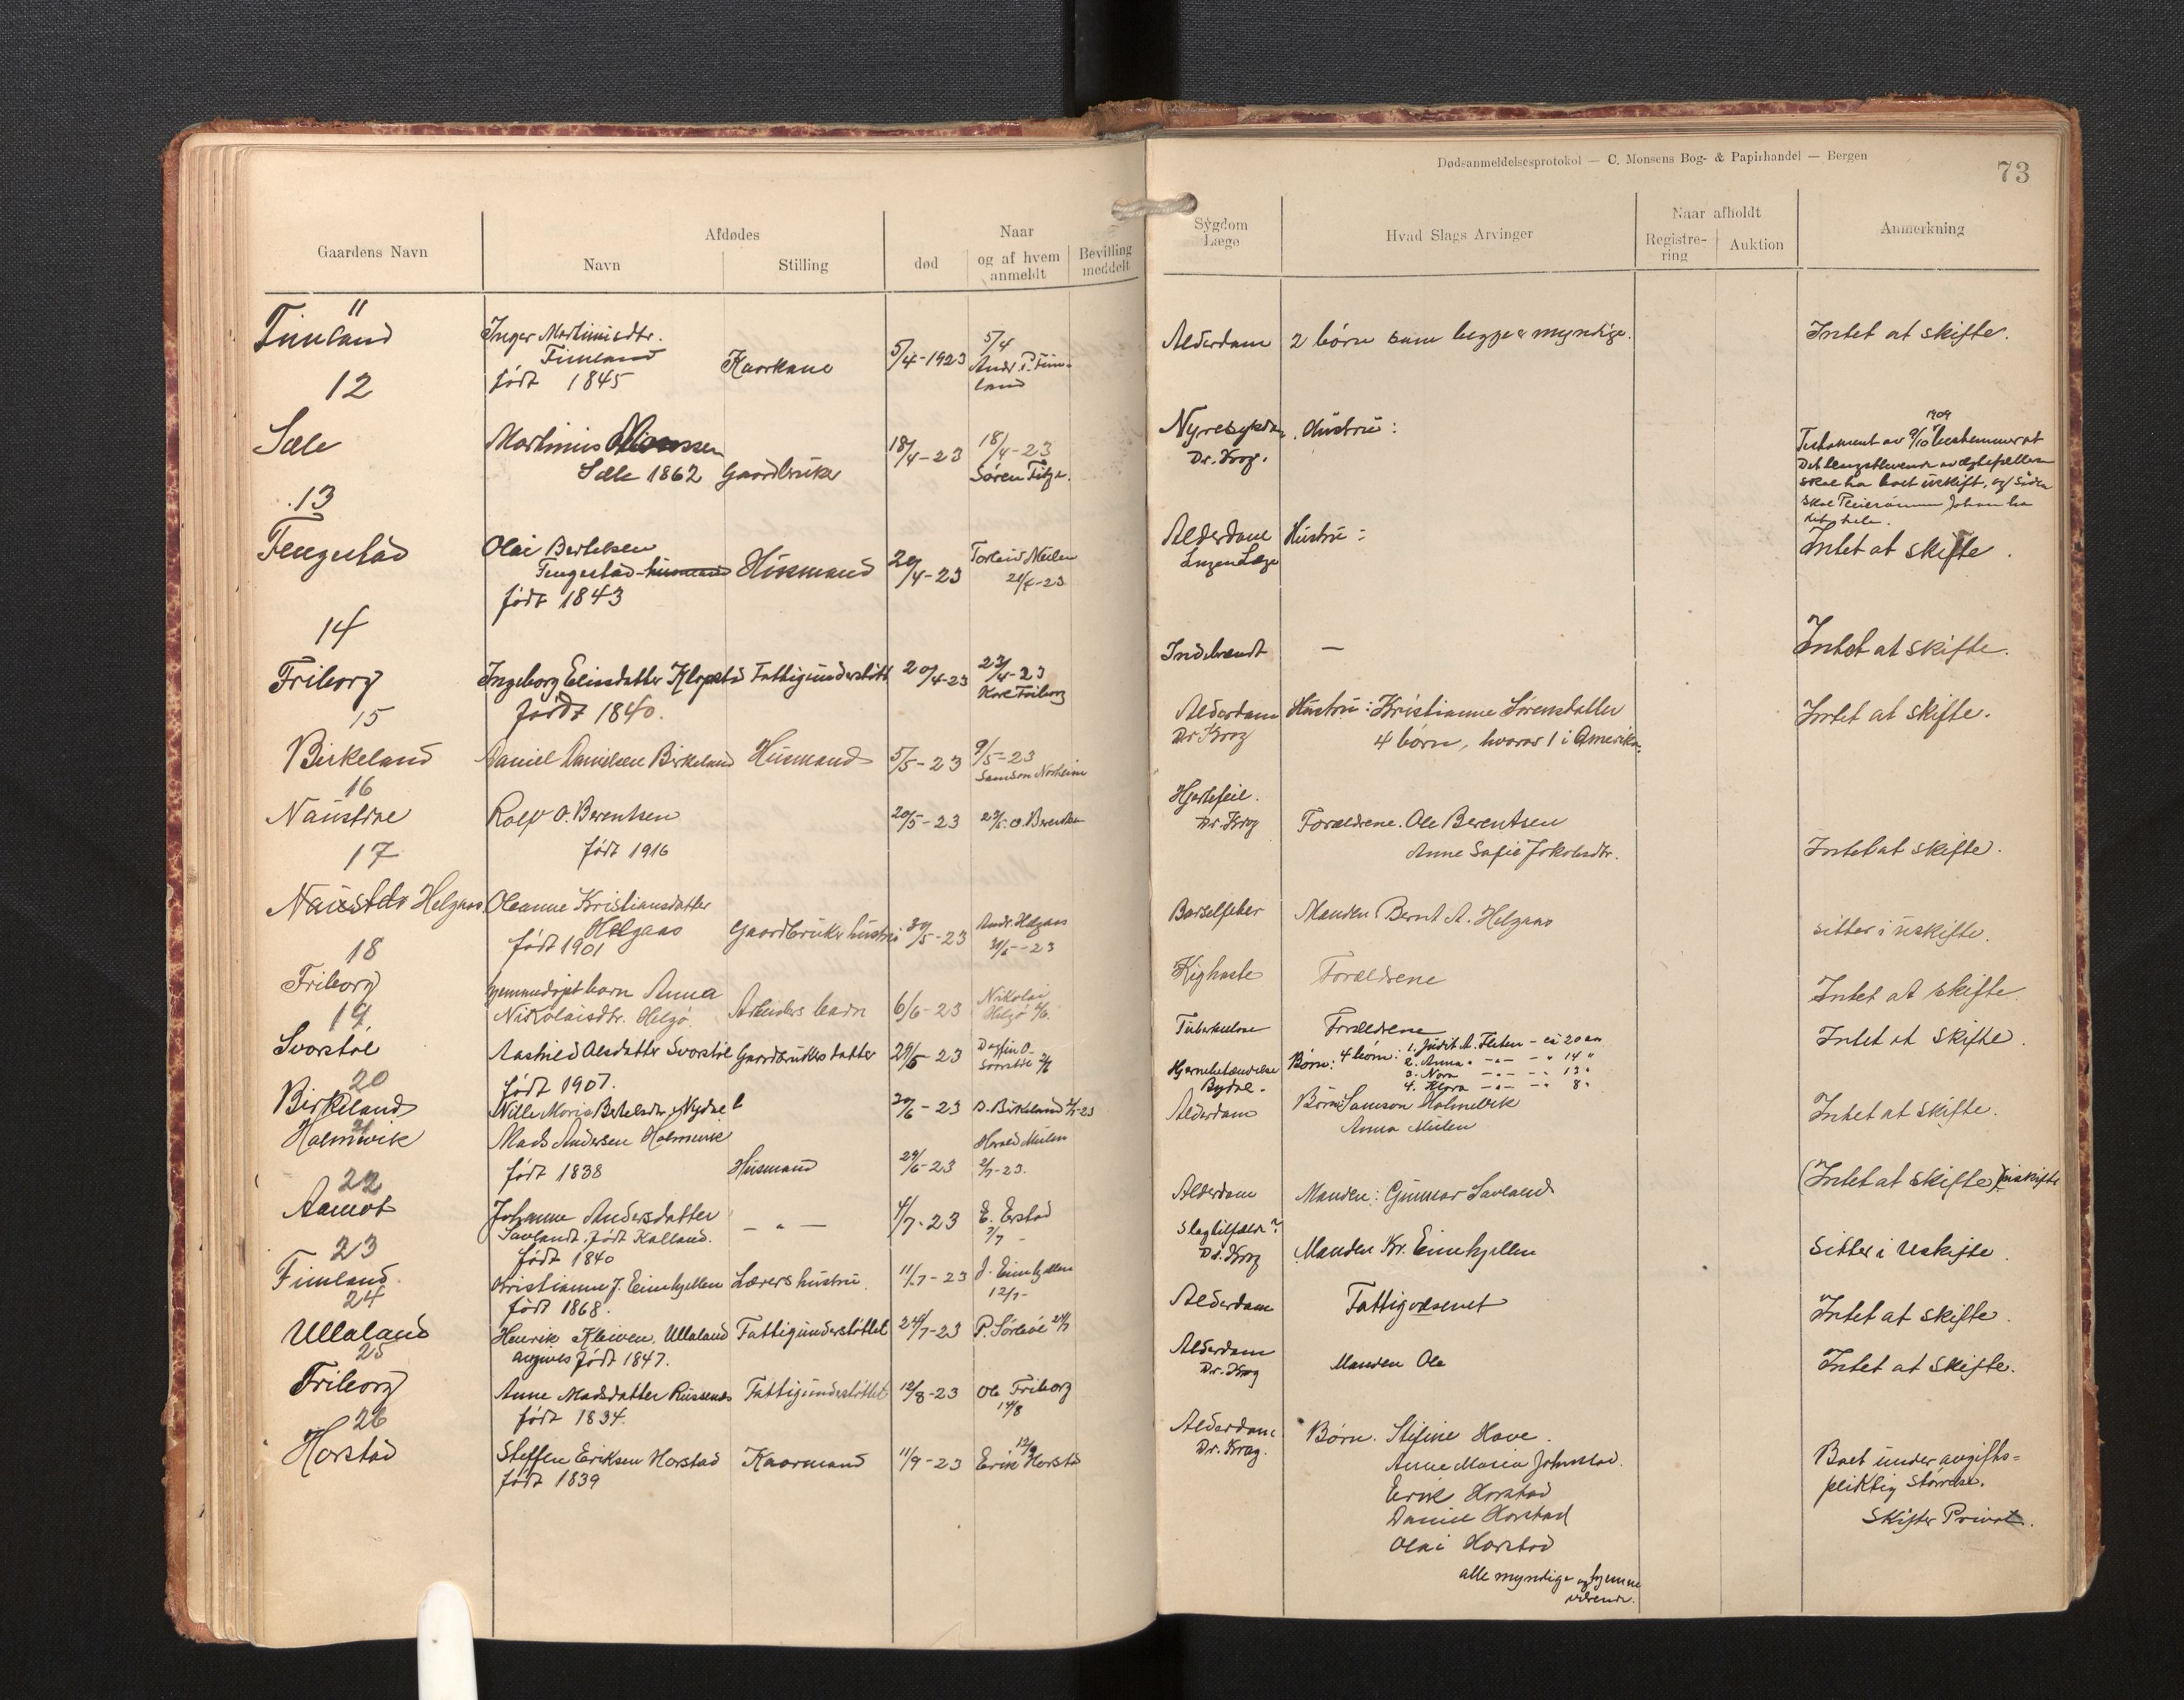 Dødsanmeldelsesprotokol — C. Monsens Bog- & Papirhandel — Bergen
73
Gaardens Navn
Afdødes
Navn
Stilling
Naar
død
og af hvem anmeldt
Bevilling meddelt
Sygdom Læge
Hvad Slags Arvinger
Naar afholdt
Registrering
Auktion
Anmerkning
11
Timland
Inger Martinusdtr.
Timland
født 1845
Kaarkone
5/4-1923
5/4
Andr. P. Timland
Alderdom
2 børn som begge er myndige.
Intet at skifte.
12
Sæle
Martinus
Sæle 1862
Gaardbruker
18/4-23
18/4-23
Søren
Nyresykdom
Dr. Krog.
Hustru:
1909
Testament av 9/10 bestemmer at
Det lengstlevende av egtefællene
skal ha boet uskift, og siden
skal Pleiesønnen Johan ha
det hele.
13
Tengestad
Olai Bertelsen
Tengestad husmand
født 1843
Husmand
20/4-23
Torleiv Mulen
21/4-23
Alderdom
Ingen Læge
Hustru:
Intet at skifte.
14
Friborg
Ingeborg Eliasdatter Klopstad
født 1840.
Fattigunderstøtt
20/4-23
23/4-23
Kore Friborg
Indebrændt
—
Intet at skifte.
15
Birkeland
Daniel Danielsen Birkeland
Husmand
5/5-23
9/5-23
Samson Norheim
Alderdom
Dr Krog
Hustru: Kristianne Sørensdatter
4 børn, hvorav 1 i Amerika.
Intet at skifte.
16
Naustdal
Rolf O. Berentsen
født 1916
20/5-23
23/5. O. Berentsen
Hjertefeil.
Dr. Krog
Forældrene. Ole Berentsen
Anne Sofie Jakobsdtr.
Intet at skifte.
17
Naustdal Helgaas
Oleanne Kristiansdatter
Helgaas
født 1901
Gaardbruker hustru
30/5-23
Andr. Helgaas
31/5-23
Barselfeber
Manden Bernt A. Helgaas
sitter i uskifte.
18
Friborg
hjemmedøpt barn Anna
Nikolaisdtr. Helgø.
Arbeiders barn
6/6-23
Nikolai
Helgø
Kighoste
Forældrene
Intet at skifte.
19
Svarstøl
Aastrid Olsdatter Svarstøl
født 1907.
Gaardbrukers datter
29/5-23
Dagfin O.
Svarstøl
Tuberkulose
Forældrene
Intet at skifte.
20
Birkeland
Nille Maris Bertelsdtr. Nydal
20/6-23
D. Birkeland
Hjernebetændelse
Børn: 4 børn: 1. Judit A. Fleten - ca 20 aar
2. Anna " — " — " 14 "
3. Nora — " — " 13 "
4. Klara — " — " 8 "
21
Holmevik
Mads Andersen Holmevik
født 1838
Husmand
29/6-23
Harald Mulen
2/7-23.
Alderdom
Børn: Samson Holmevik
Anna Mulen
Intet at skifte.
22
Aamot
Johanne Andersdatter
Savland. født Kalland.
født 1840
— " —
4/7-23
E. Erstad
7/7 -
Alderdom
Manden: Gunnar Savland
(Intet at skifte) uskifte
23
Timland
Kristianne J. Eimhjellen
født 1868.
Lærers hustru.
11/7-23
J. Eimhjellen
12/7-
Slagtilfælde?
Dr. Krog
Manden Kr. Eimhjellen
Sitter i Uskifte.
24
Ullaland
Henrik Kleiven, Ullaland
angives født 1847.
Fattigunderstøttet
24/7-23
P. Sørbøe 24/7
Alderdom
Fattigvæsenet
Intet at skifte.
25
Friborg
Anne Madsdatter Russenes
født 1834.
Fattigunderstøttet
12/8-23
Ole Friborg
14/8
Alderdom
Dr. Krog
Manden Ole
Intet at skifte.
26
Horstad
Steffen Eriksen Horstad
født 1839
Kaarmand
11/9-23
12/9
Erik Horstad
Alderdom
Dr. Krog.
Børn. Stefine Hove.
Anne Maria Johnstad.
Erik Horstad
Daniel Horstad
Olai Horstad
alle myndige og hjemme
værende.
Boet under avgifts-
pliktig størrelse.
Skifter Privat.